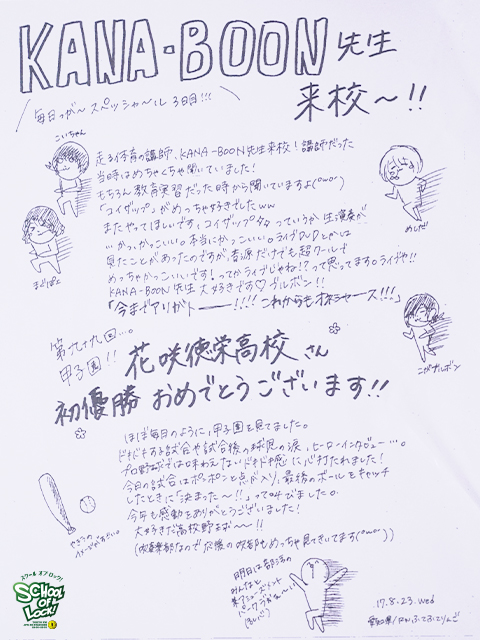 KANA-BOON先生
来校〜!!
毎日っが〜スペッシャ〜ル3日目!!!
こいちゃん
まぐりぱぇ
めしだ
こがブルボン
走る体育の講師、KANA-BOON先生来校!講師だった
当時はめちゃくちゃ聞いていました!
もちろん教育実習だった時から聞いていますよ(^ω^)
「コイザップ」がめっちゃ好きでしたww
またやってほしいです、コイザップ
っていうか生演奏が
…かっ、かっこいい。本当にかっこいい。ライブDVDとかは
見たことがあったのですが、音源だけでも超クールで
めっちゃかっこいいです!ってかライブじゃね!?って思ってます。ライブや!!
KANA-BOON先生大好きです♡ブルボン!!
「今までアリがトー――!!!!これからもオネシャース!!!」
第九十九回…。
甲子園!!
花咲徳栄高校さん
初優勝おめでとうございます!!
ほぼ毎日のように、甲子園を見てました。
ドキドキする試合や試合後の球児の涙、ヒーローインタビュー…。
プロ野球では味わえないドキドキ感に心打たれました!
今日の試合はポンポンと点が入り、最後のボールをキャッチ
したときに「決まった〜!!」って叫びました。
今年も感動をありがとうございました!
大好きだ高校野球〜〜!!
(吹奏楽部なので応援の吹部もめっちゃ見てきいてます(^ω^))
やきうの
イメージがすごい。
明日は部活の
みんなと
パークうぇ〜い!!
SCHOOL OF LOCK!
17.8.23.wed
愛知県/RNふてふてりんご